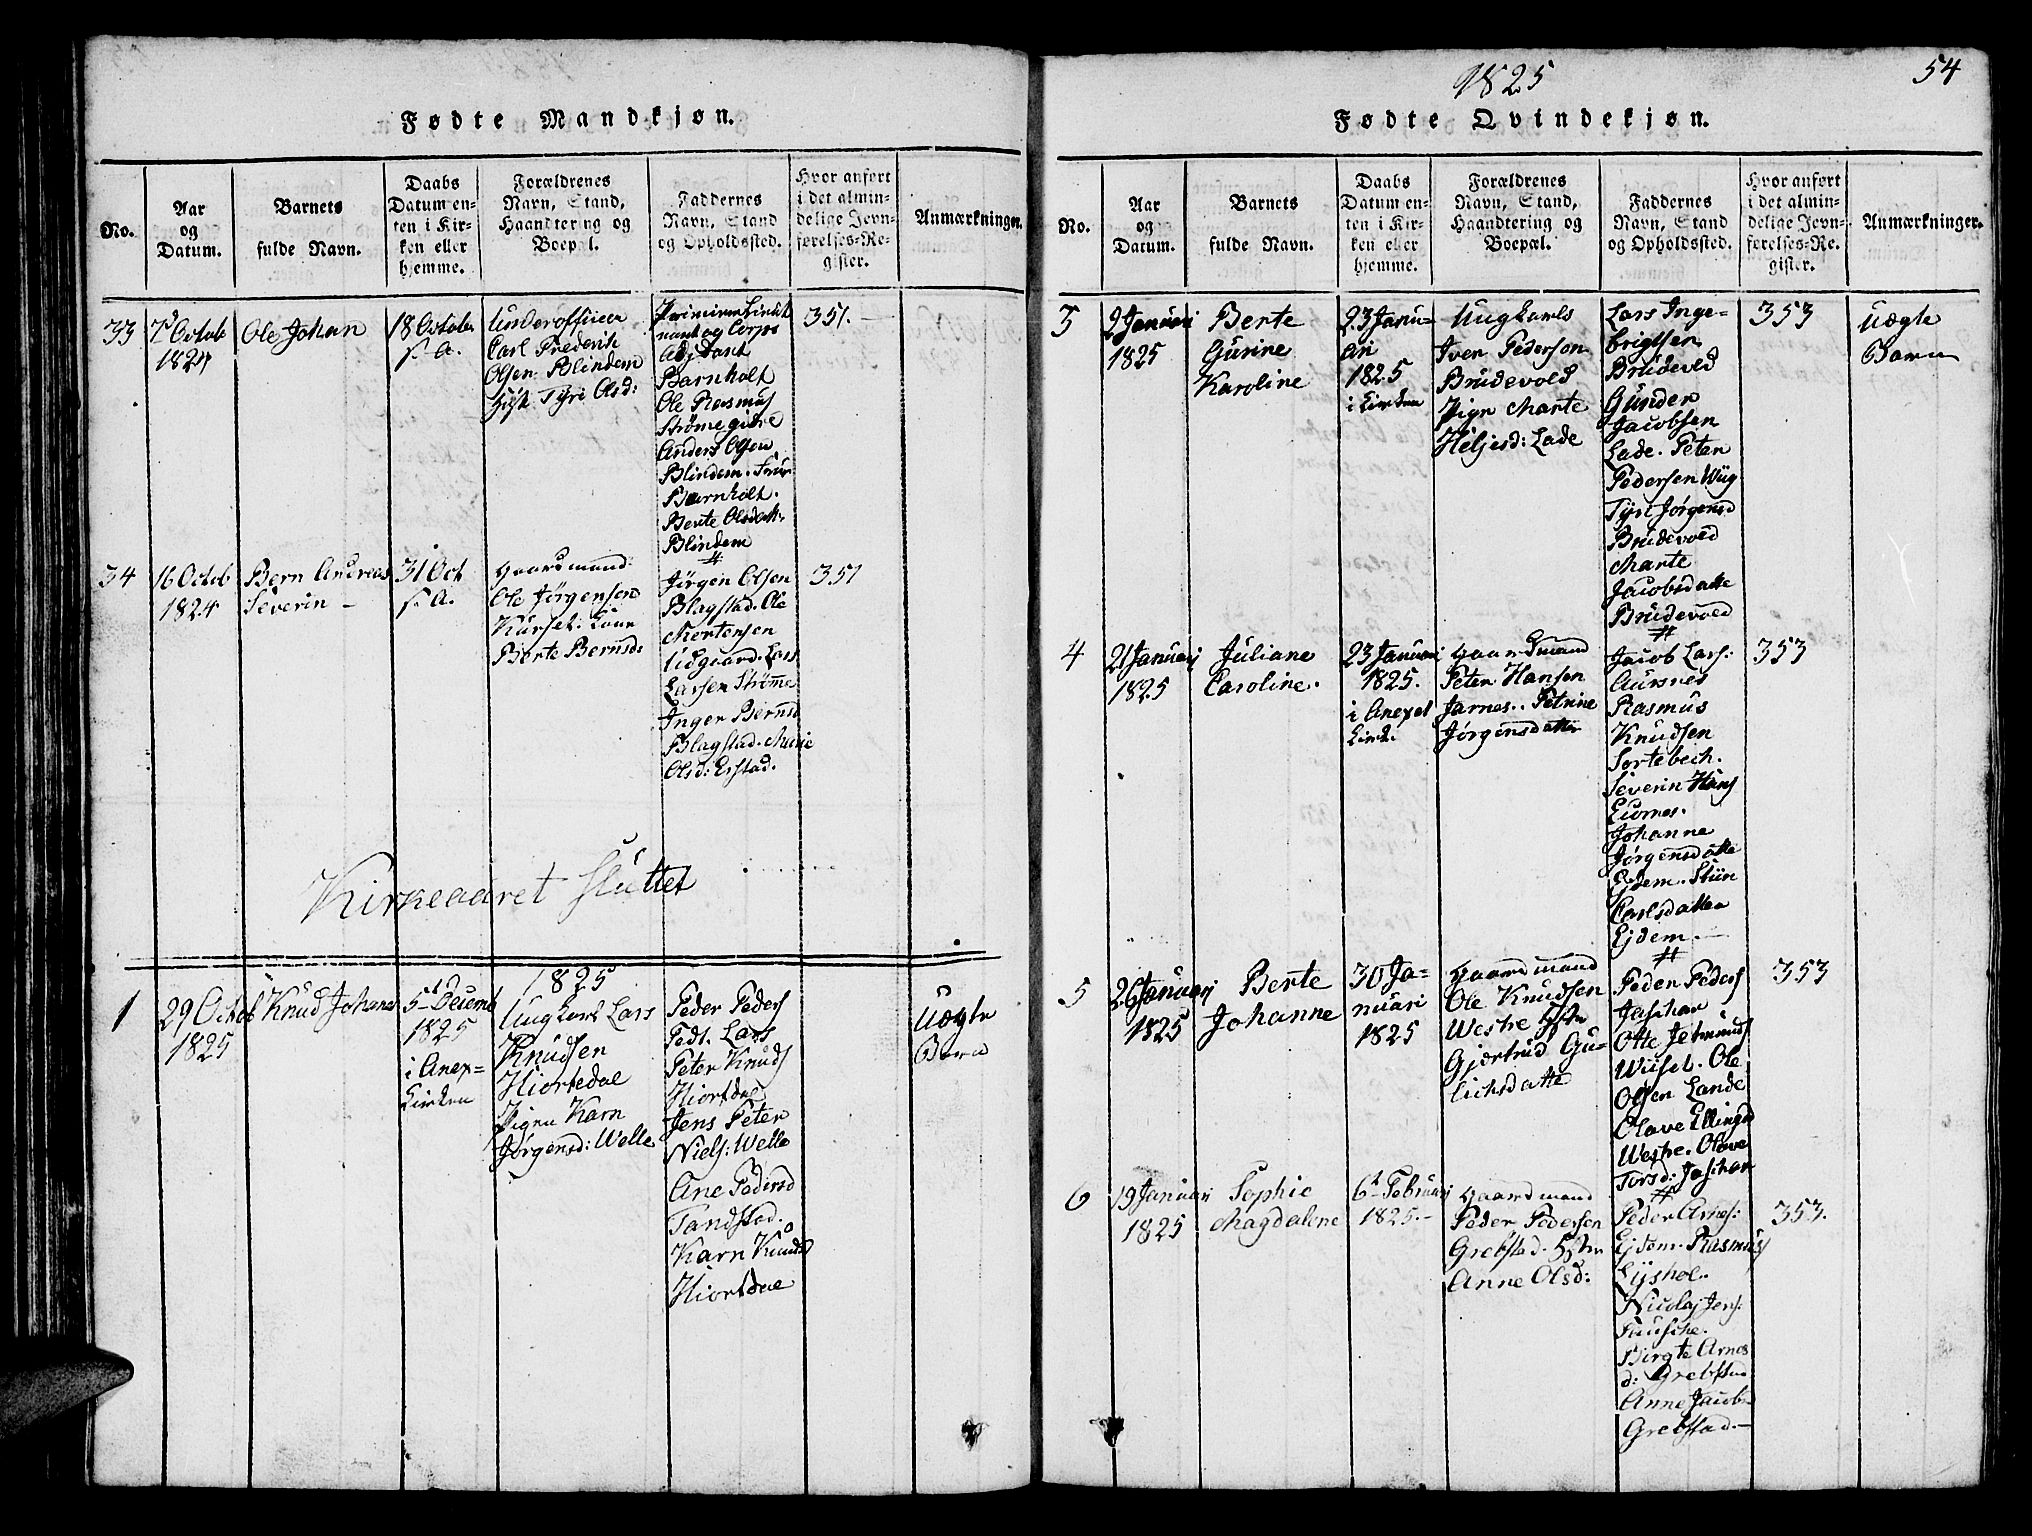 Fødte Mandkjøn.
No.
Aar
og
Datum.
Barnets
fulde Navn.
Daabs
Datum en-
ten i Kir-
ken eller
hjemme.
Forældrenes
Navn, Stand,
Haandtering og
Boepæl.
Faddernes
Navn, Stand
og Opholdssted.
Hvor anført
i det almin-
delige Jevn-
førelses-Re-
gister.
Anmærkninger.
33
7d Octob
1824
Ole Johan
18 Octobr
s. A.
Underofficeer
Carl Frederik
Olsen Blindem
Tyri Olsd:
Premierelieut
nant og Corps
Adjdant
Barnholt
Ole Rasmus
Strømegiære
Anders Olsen
Blindem. Frue
Barnholt.
Berte Olsdatt.
Blindem
351.
34
16 Octob
1824
Bern Andreas
Severin –
31 Oct
s. A.
Gaardmand
Ole Jørgensen
Kurset. Kone
Berte Bernsd:
Jørgen Olsen
Blagstad. Ole
Mortensen
Uidgaard. Lars
Larsen Strømme
Inger Bernsd
Blagstad. Marie
Olsd: Erstad.
351
Kirkeaaret sluttet
1825
1
29 Octob
1825
Knud Johanes
5t Decemb
1825
i Anex-
Kirken
Ungkarl Lars
Knudsen
Hiortedal
Pigen Karn
Jørgensd: Welle
Peder Peders
Fedt. Lars
Peter Knuds
Hiortdal
Jens Peter
Niels: Welle
Ane Pedersd
Tandstad.
Karn Knudsd
Hiortdal
Uægte
Barn
1825
54
Fødte Qvindekjøn.
No.
Aar
og
Datum.
Barnets
fulde Navn.
Daabs
Datum en-
ten i Kir-
ken eller
hjemme.
Forældrenes
Navn, Stand,
Haandtering og
Boepæl.
Faddernes
Navn, Stand
og Opholdssted.
Hvor anført
i det almin-
delige Jevn-
førelses-Re-
gister.
Anmærkninger.
3
9 Januari
1825
Berte
Gurine
Karoline
23 Janu-
ari
1825
i Kirken
Ungkarls
Iver Pederson
Brudevold
Pige Marte
Heljesd: Lade
Lars Inge-
brigtsen
Brudevold
Gunder
Jacobsen
Lade. Peter
Pedersen Wiig
Tyri Jørgensd
Brudevold
Marte
Jacobsdatte
Brudevold
353
Uægte
Barn
4
21 Januari
1825
Juliane
Caroline.
23 Januari
1825.
i Anexet
Kirk.
Gaardmand
Peter Hansen
Jarnes. Petrine
Jørgensdatter
Jacob Lars:
Aursnes
Rasmus
Knudsen
Sortebech.
Severin Hans
Eidnes.
Johanne
Jørgensdatte
Ejdem. Stiin
Carlsdatter
Ejdem.
353
5
26 Januari
1825
Berte
Johanne
30 Ja-
nuari
1825
Gaardmand
Ole Knudsen
Westre
Gjertrud Gu-
lichsdatte
Peder Peders
Jaschar
Otte Jetmunds
Wiiset. Ole
Olsen Lande
Olave Ellingsd
Westre. Olave
Torsd: Jaschar
353
6
19 Januari
1825
Sophie
Magdalene
6t Februari
1825.–
Gaardmand
Peder Pedersen
Grebstad.
Anne Olsd:
Peder Arnes:
Ejdem. Rasmus
Lysholm.
Nicolaj Jens:
Fausche.
Birgte Arnes
d: Grebstad
Anne Jacobs
Grebstad.–
353.